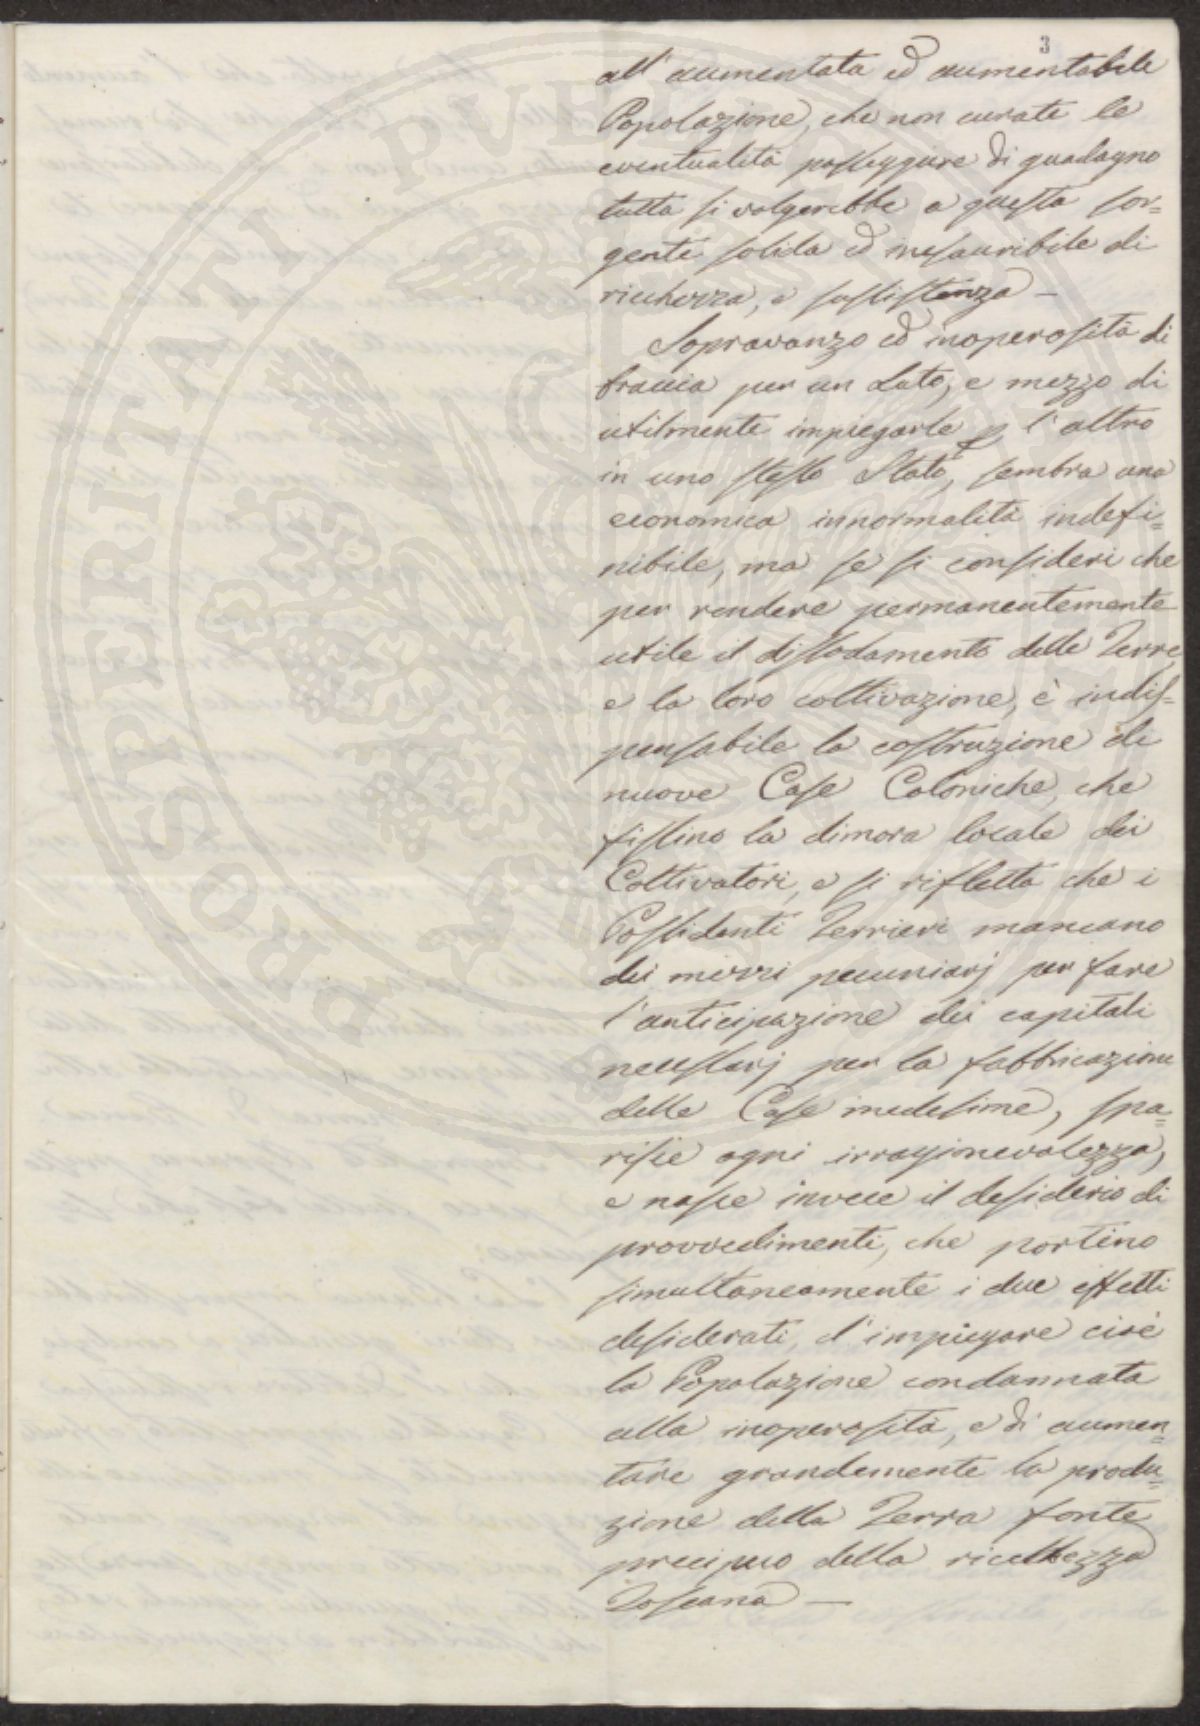 3
all' aumentata ed aumentabile
Popolazione, che non curate le
eventualità passeggiere di guadagno
tutta si volgerebbe a questa sor=
gente solida ed inesauribile di
ricchezza, e sussistenza —
Sopravanzo ed inoperosità di
braccia per un lato, e mezzo di
utilmente impiegarle p l'altro
in uno stesso Stato, sembra una
economica innormalità indefi=
nibile, ma se si consideri che
per rendere permanentemente
utile il dissodamento delle Terre
e la loro coltivazione, è indis=
pensabile la costruzione di
nuove Case Coloniche, che
fissino la dimora locale dei
Coltivatori, e si rifletta che i
Possidenti Terrieri mancano
dei mezzi pecuniarj per fare
l'anticipazione dei capitali
necessarj per la fabbricazione
delle Case medesime, spa=
risce ogni irragionevolezza,
e nasce invece il desiderio di
provvedimenti, che portino
simultaneamente i due effetti
desiderati, d'impiegare cioè
la Popolazione condannata
alla inoperosità, e di aumen=
tare grandemente la produ=
zione della Terra fonte
precipuo della ricchezza
Toscana —
PROSPERITATI PUBLICAE